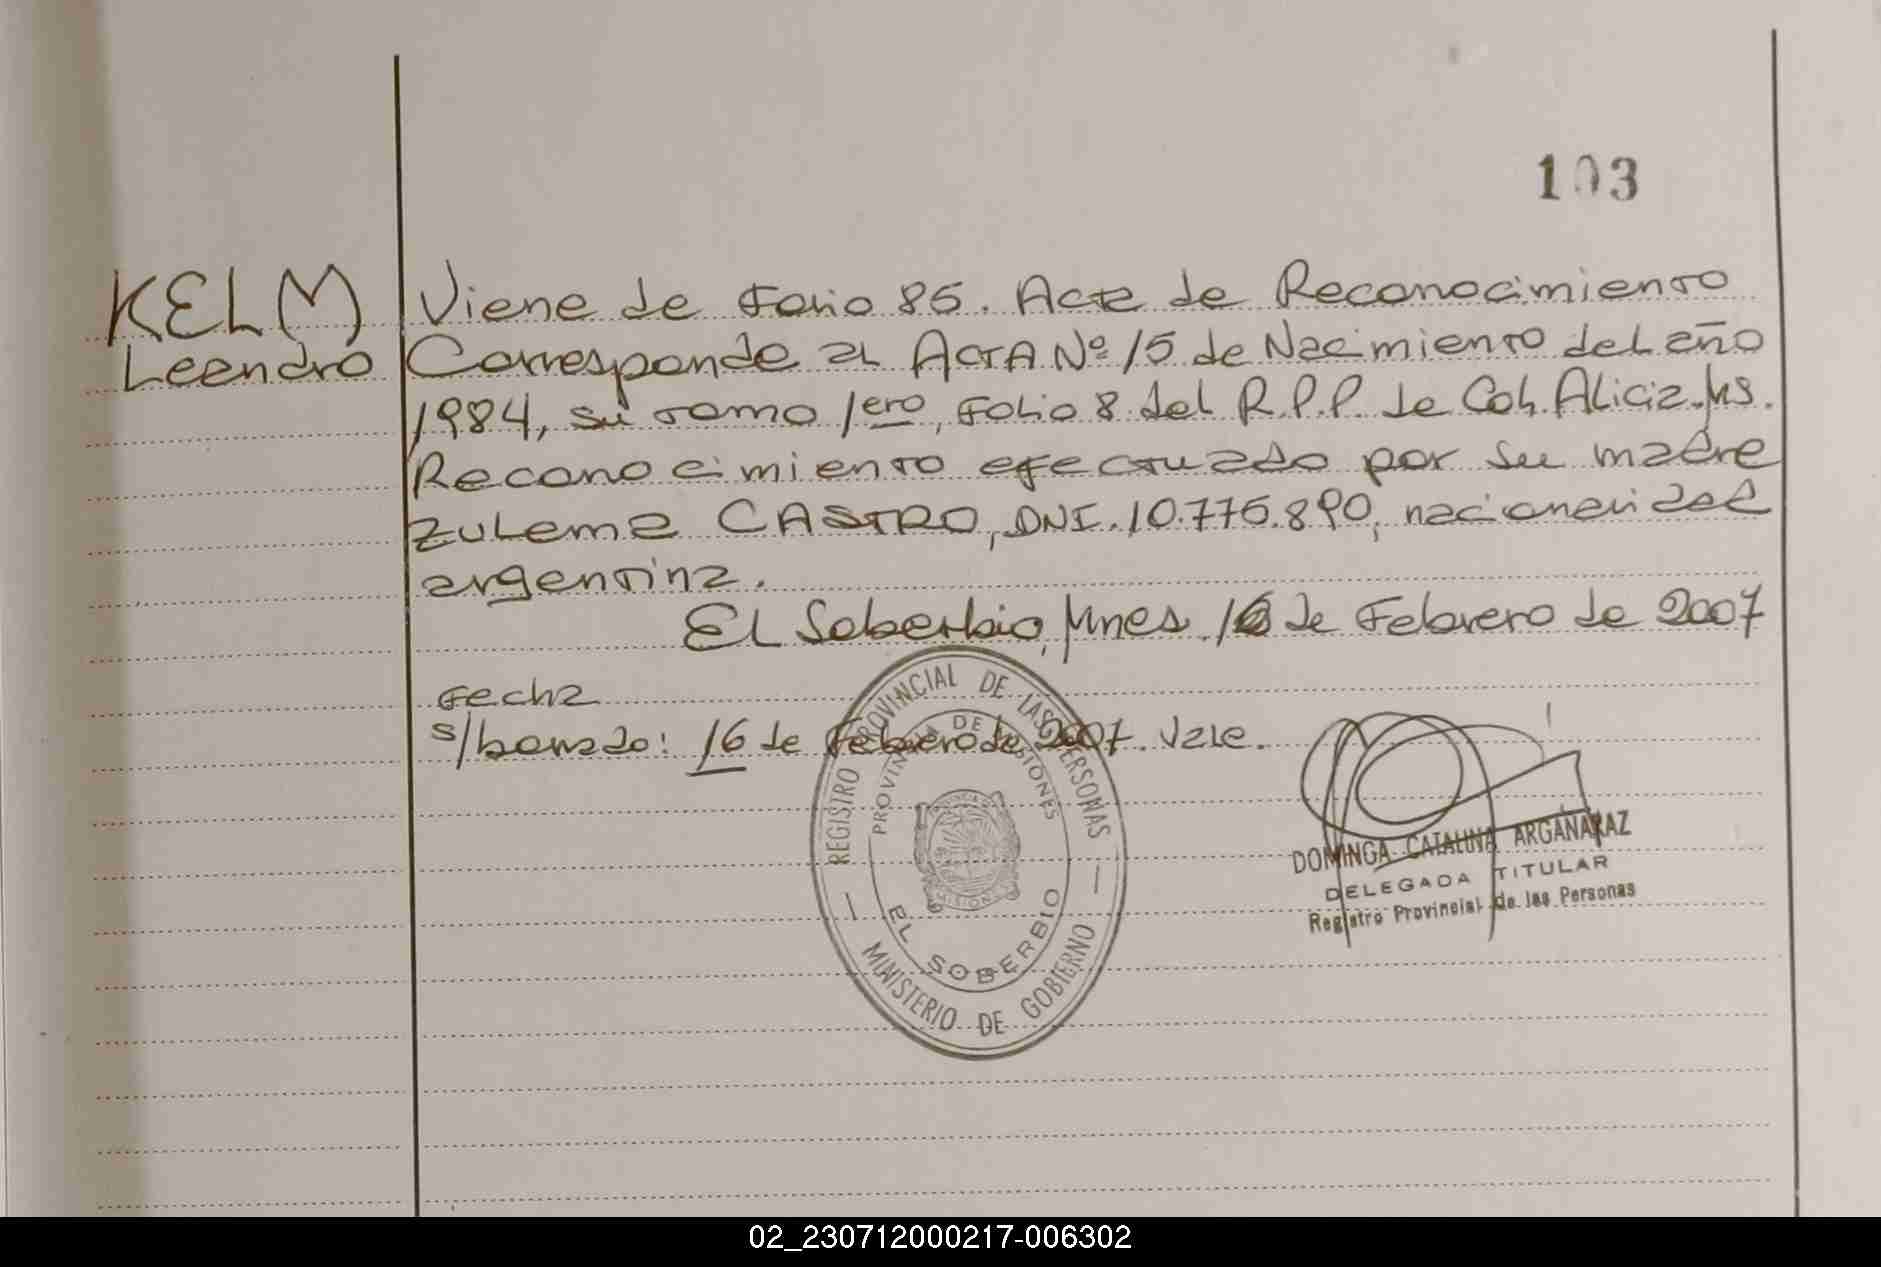 103
KELM
Leandro
Viene de Folio 85. Acta de Reconocimiento
Corresponde al ACTA Nº 15 de Nacimiento del año
1984, su Tomo 1ero, Folio 8 del R.P.P. de Col. Alicia. Ms.
Reconocimiento efectuado por su madre
Zulema CASTRO, DNI. 10.775.890, nacionalidad
argentina.
El Soberbio, Mnes, 16 de Febrero de 2007
Fecha
s/borrado: 16 de Febrero de 2007. Vale.
REGISTRO PROVINCIAL DE LAS PERSONAS
PROVINCIA DE MISIONES
EL SOBERBIO
MINISTERIO DE GOBIERNO
DOMINGA CATALINA ARGAÑARAZ
DELEGADA TITULAR
Registro Provincial de las Personas
02_230712000217-006302